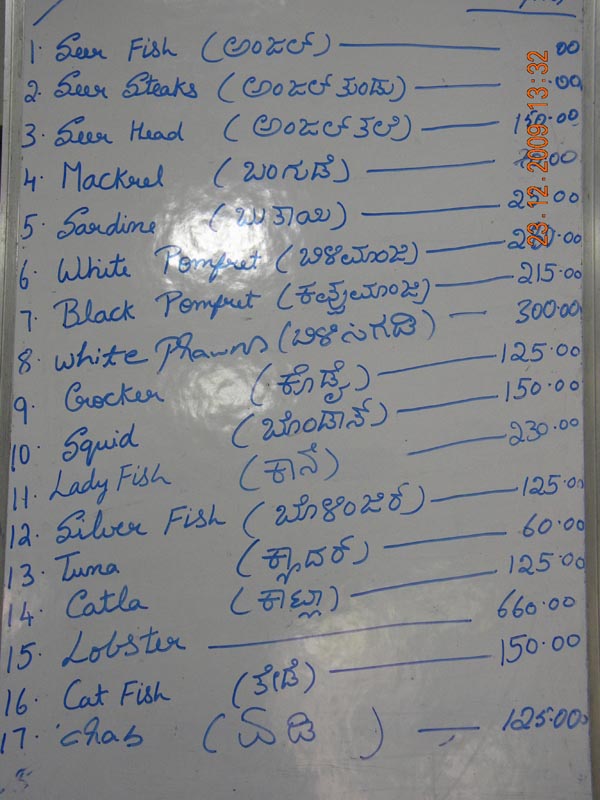 1. Seer Fish (ಅಂಜಲ್) — 00
2. Seer Steaks (ಅಂಜಲ್ ತುಂಡು) — 00
3. Seer Head (ಅಂಜಲ್ ತಲೆ) — 150.00
4. Mackrel (ಬಂಗುಡೆ) — 00
5. Sardine (ಬುತಾಯಿ) — 00
6. White Pomfret (ಬಿಳಿಮಾಂಜಿ) — 00
7. Black Pomfret (ಕಪ್ಪುಮಾಂಜಿ) — 215.00
8. White Prawns (ಬಿಳಿ ಸಿಗಡಿ) — 300.00
9. Crocker (ಕೊಡ್ಡೈ) — 125.00
10. Squid (ಬೊಂಡಾಸ್) — 150.00
11. Lady Fish (ಕಾನೆ) — 230.00
12. Silver Fish (ಬೊಳಿಂಜಿರ್) — 125.00
13. Tuna (ಕ್ಲಾದರ್) — 60.00
14. Catla (ಕಾಟ್ಲಾ) — 125.00
15. Lobster — 660.00
16. Cat Fish (ತೇಡೆ) — 150.00
17. (ಏಡಿ) — 125.00
23.12.2009 13:32